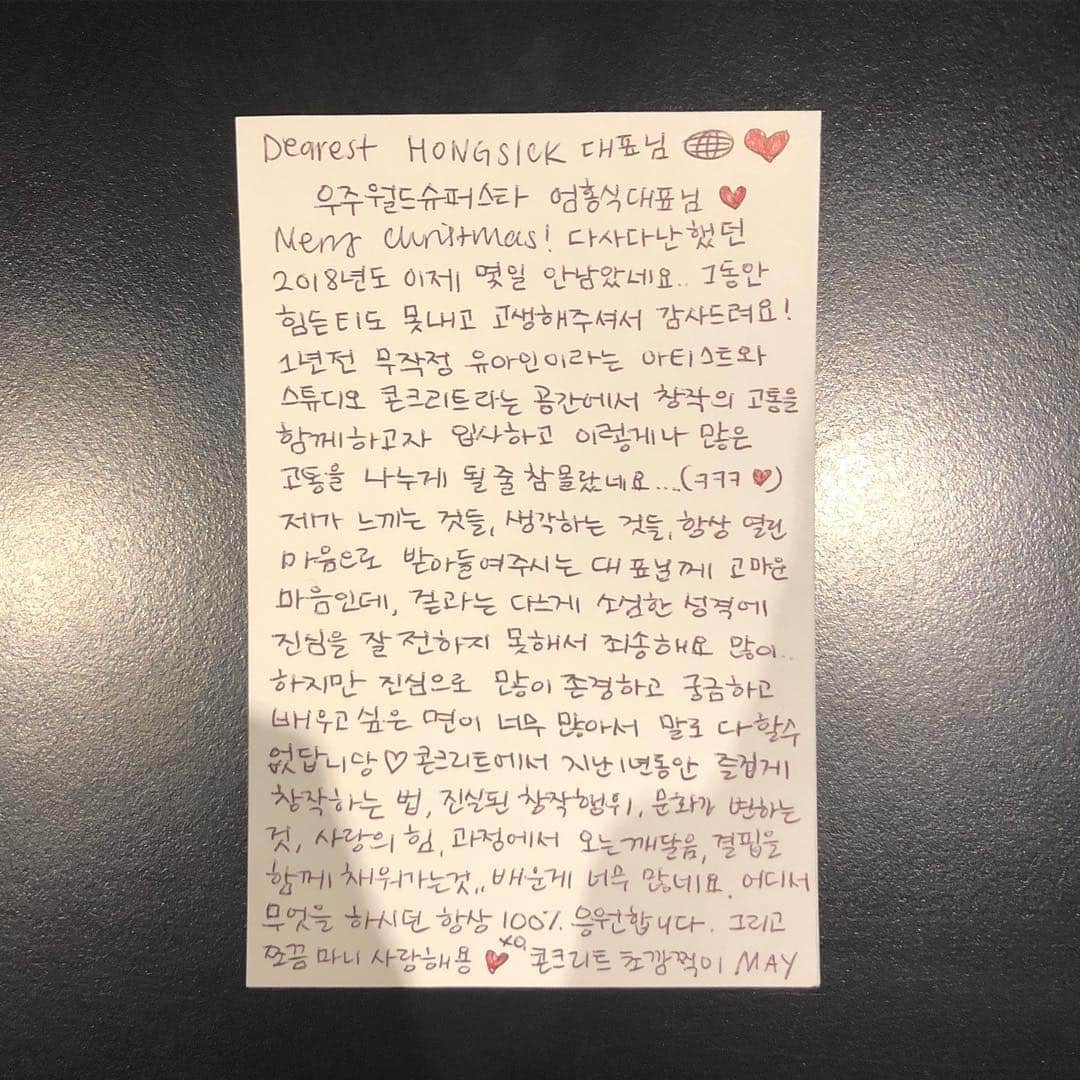 Dearest HONGSICK 대표님
우주월드슈퍼스타 엄홍식대표님
Merry Christmas! 다사다난했던
2018년도 이제 몇일 안남았네요.. 그동안
힘든티도 못내고 고생해주셔서 감사드려요!
1년전 무작정 유아인이라는 아티스트와
스튜디오 콘크리트라는 공간에서 창작의 고통을
함께하고자 입사하고 이렇게나 많은
고통을 나누게 될 줄 참 몰랐네요....(ㅋㅋㅋ ♥)
제가 느끼는 것들, 생각하는 것들, 항상 열린
마음으로 받아들여주시는 대표님께 고마운
마음인데, 겉과는 다르게 소심한 성격에
진심을 잘 전하지 못해서 죄송해요 많이..
하지만 진심으로 많이 존경하고 궁금하고
배우고 싶은 면이 너무 많아서 말로 다 할수
없답니당 ♡ 콘크리트에서 지난 1년동안 즐겁게
창작하는 법, 진실된 창작행위, 문화가 변하는
것, 사랑의 힘, 과정에서 오는 깨달음, 결핍을
함께 채워가는것,, 배운게 너무 많네요. 어디서
무엇을 하시던 항상 100% 응원합니다. 그리고
쪼끔 마니 사랑해용 ♥ xo, 콘크리트 초깜찍이 MAY